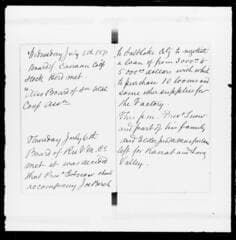 Wednesday July 5th 1871
Board of Canaan Coop
Stock Herd met.
Also Board of Gen
Coop Assn
Thursday July 6th
Board of Rio Vir. Mc
met it was decided
that Pres
accompany Jos Birch
to Saltlake City to negotiate
a loan of from 3000 to
5000 dollars with which
to purchase 10 looms and
some other supplies for
the Factory.
This p.m. Pres Snow
and part of his family
and
left for Kanab and Long
Valley.